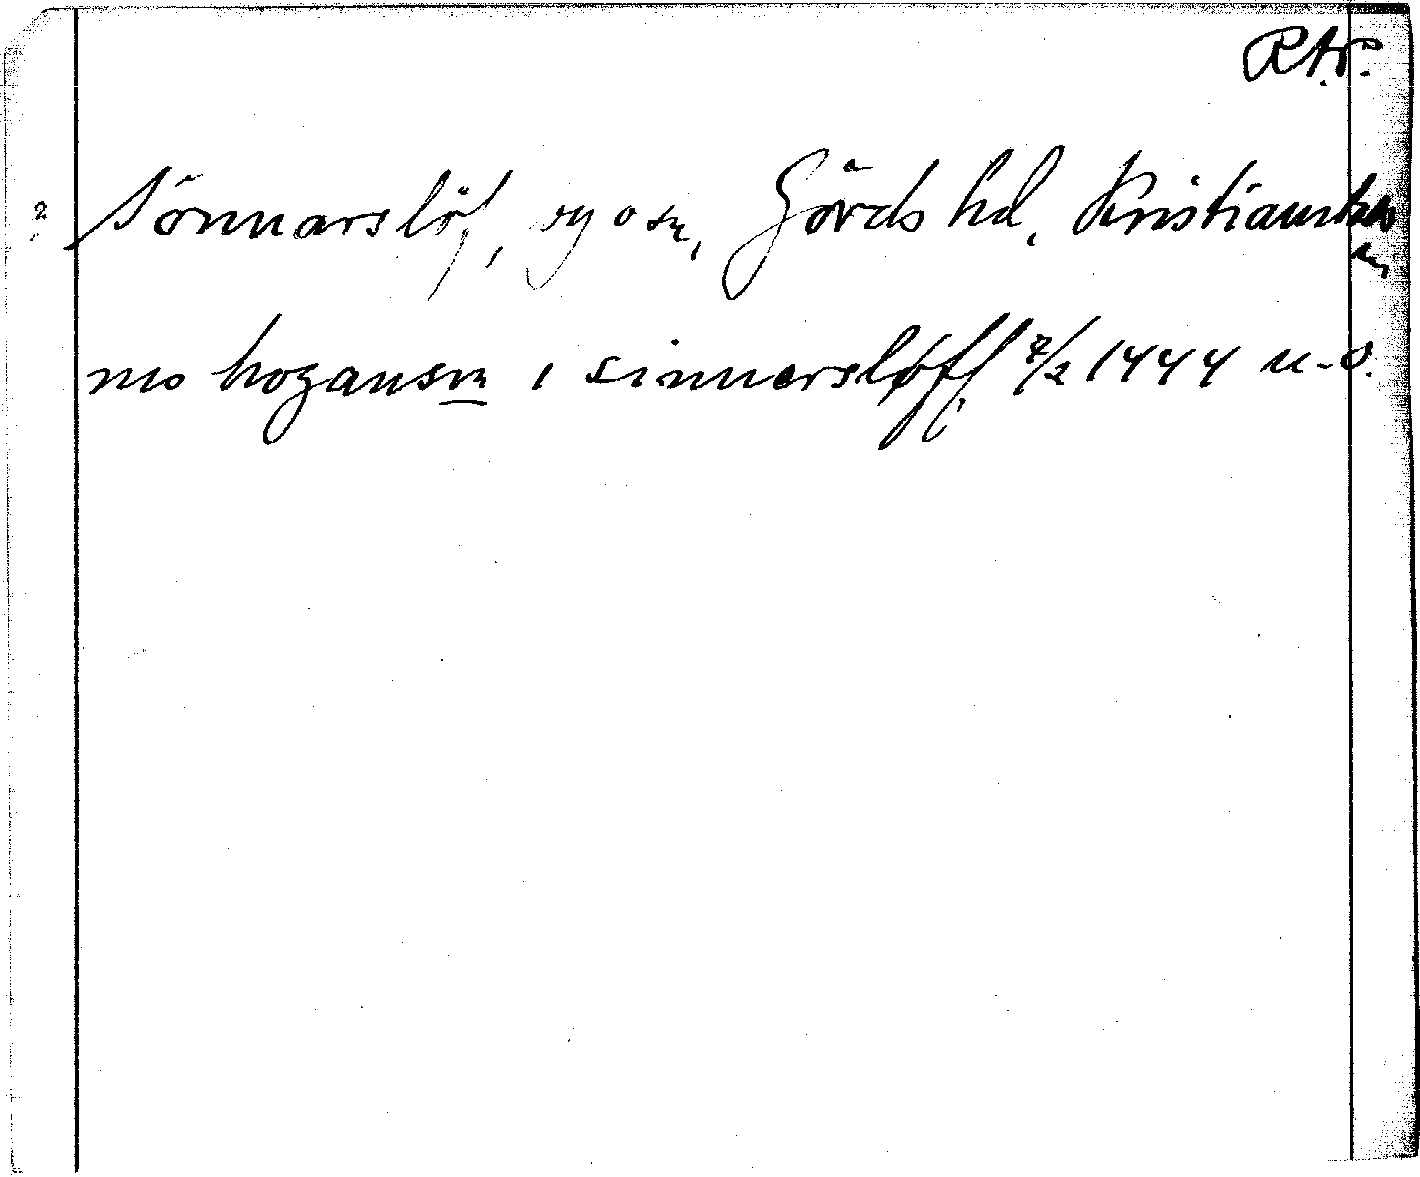 RAP.
2 Sönnarslöf, by o sn, Görds hd. Kristianstds
län
nis hoganszn i sinnersløff 7/2 1444 u-o.